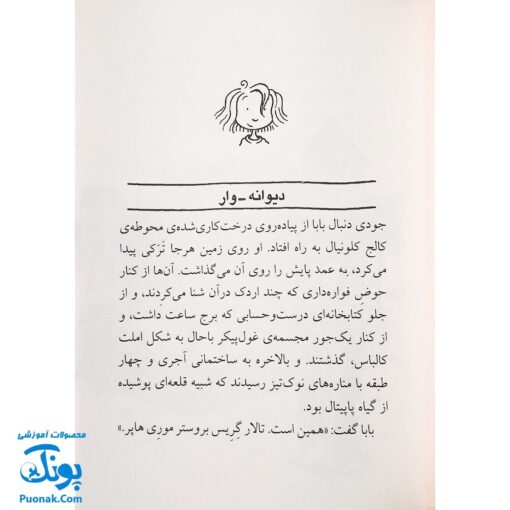 دیوانه-وار
جودی دنبال بابا از پیاده‌روی درخت‌کاری‌شده‌ی محوطه‌ی
کالج کلونیال به راه افتاد. او روی زمین هرجا تَرَکی پیدا
می‌کرد، به عمد پایش را روی آن می‌گذاشت. آن‌ها از کنار
حوضِ فواره‌داری که چند اردک درآن شنا می‌کردند، و از
جلو کتابخانه‌ای درست‌وحسابی که برج ساعت داشت، و
از کنار یک‌جور مجسمه‌ی غول‌پیکر باحال به شکل املت
کالباس، گذشتند. و بالاخره به ساختمانی آجری و چهار
طبقه با مناره‌های نوک‌تیز رسیدند که شبیه قلعه‌ای پوشیده
از گیاه پاپیتال بود.
بابا گفت: «همین است. تالار گِریس بروستر موریِ هاپر.»
محصولات آموزشی
پونک
Puonak.Com